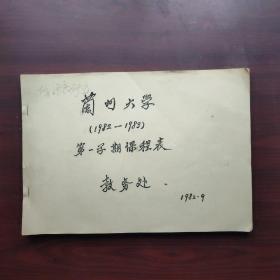 蘭州大学
(1982—1983)
第一学期课程表
教务处
1982.9